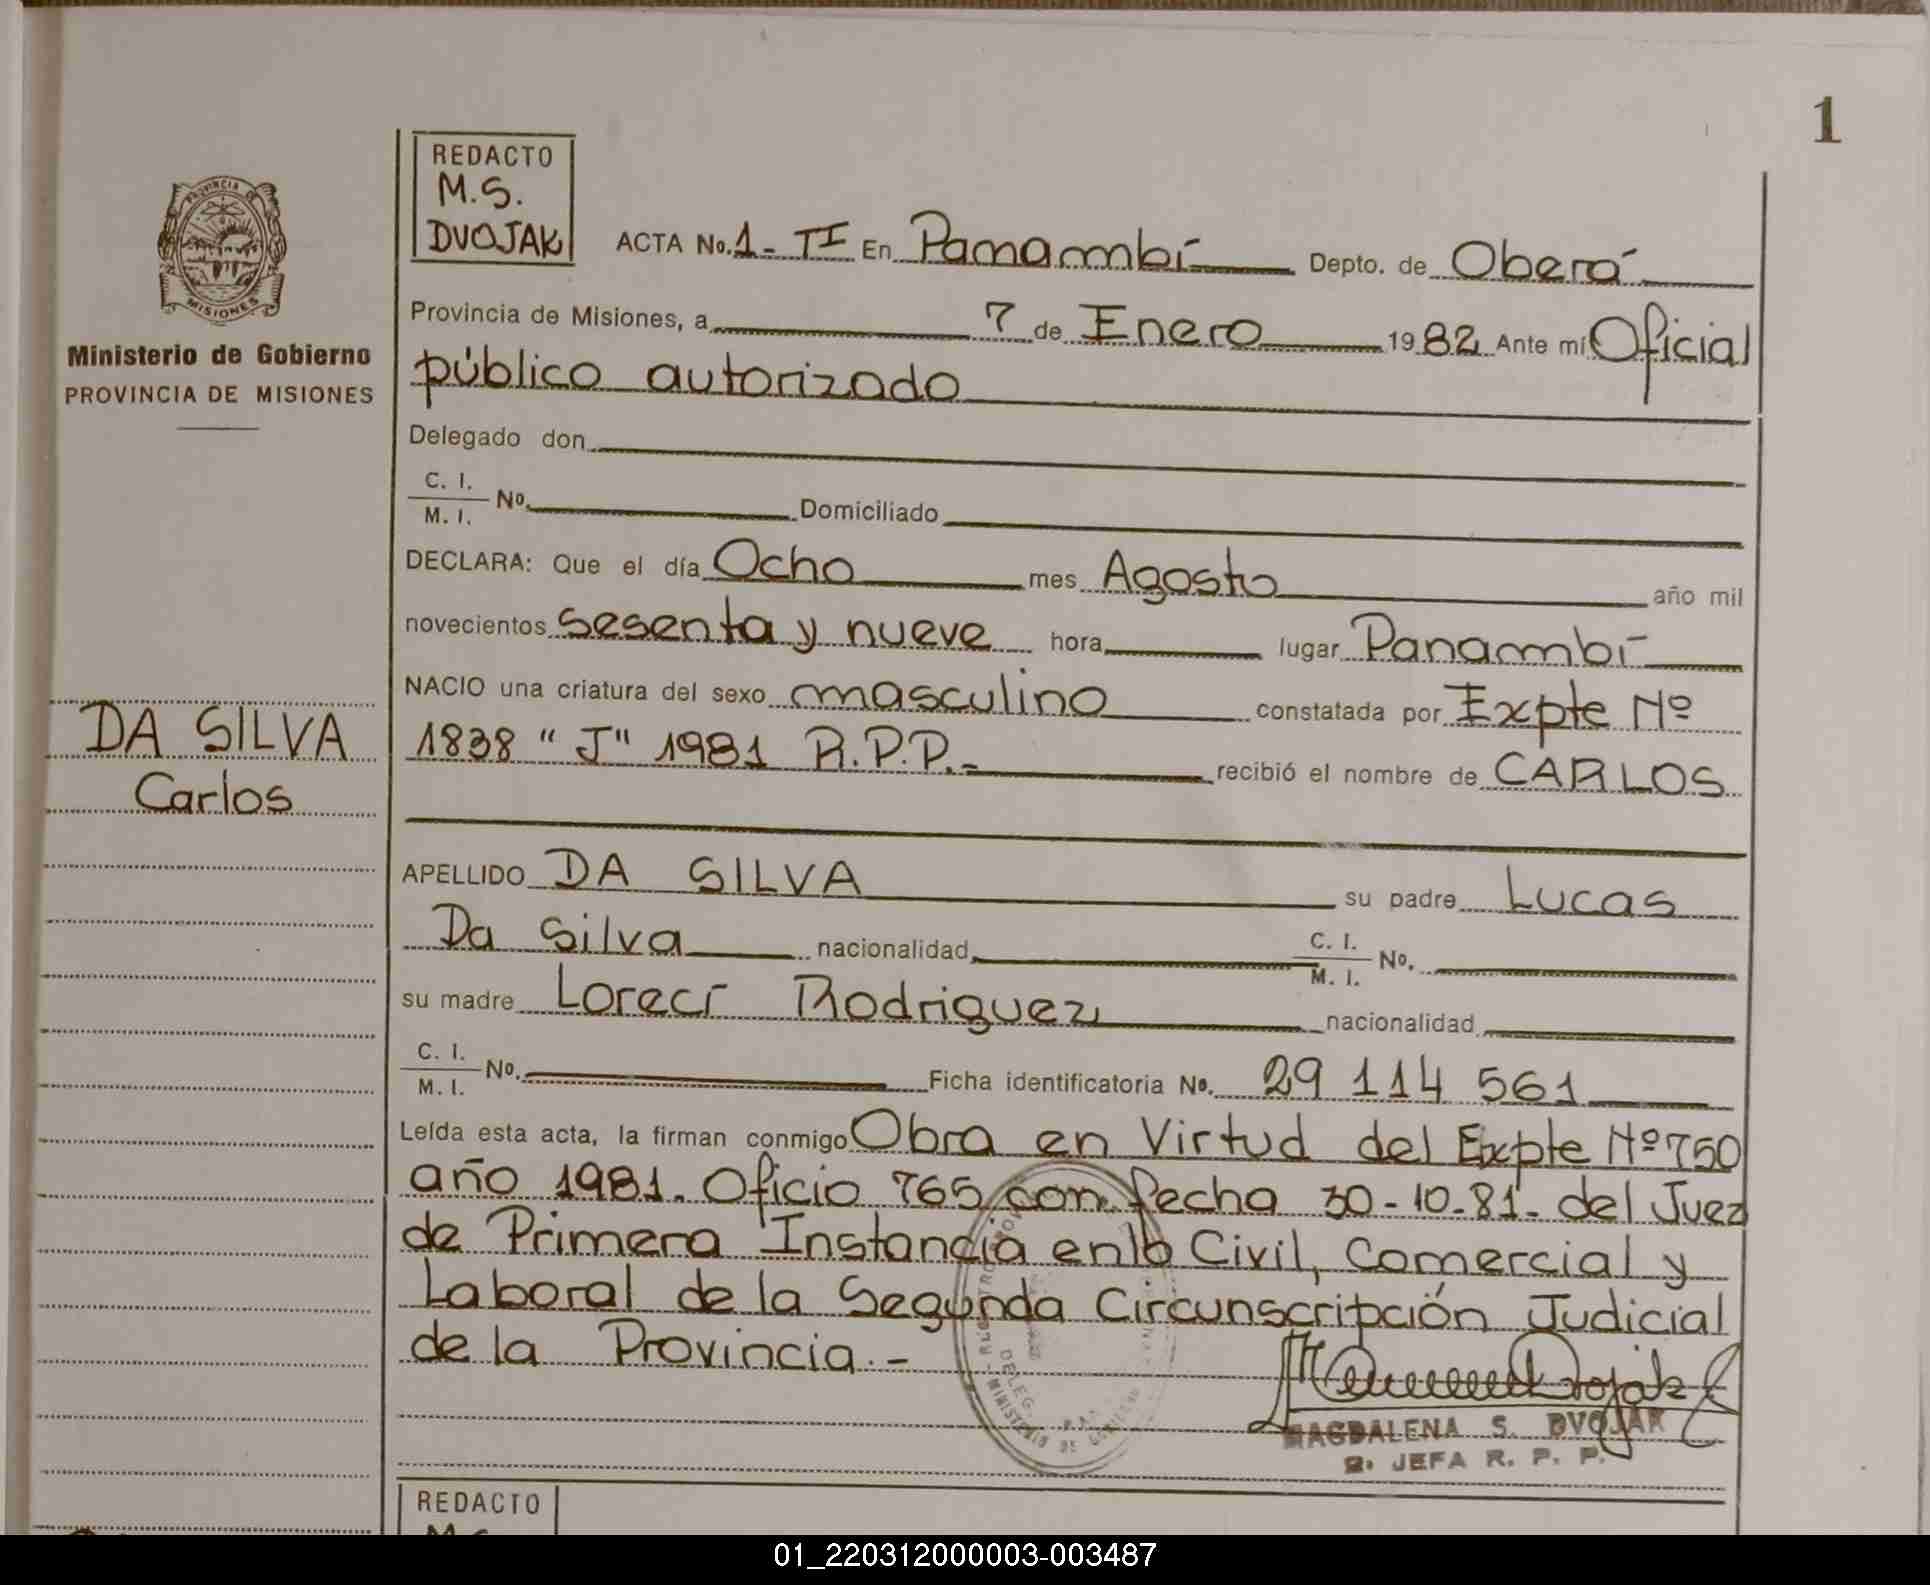 1
REDACTO
M.S.
DVOJAK
PROVINCIA DE
MISIONES
Ministerio de Gobierno
PROVINCIA DE MISIONES
ACTA No. 1 - TI En Panambí Depto. de Oberá
Provincia de Misiones, a 7 de Enero 1982 Ante mí Oficial
público autorizado
Delegado don
C. I.
M. I. No. Domiciliado
DECLARA: Que el día Ocho mes Agosto año mil
novecientos sesenta y nueve hora lugar Panambí
NACIO una criatura del sexo masculino constatada por Expte Nº
1838 "J" 1981 R.P.P.- recibió el nombre de CARLOS
DA SILVA
Carlos
APELLIDO DA SILVA su padre Lucas
Da Silva nacionalidad C. I.
M. I. No.
su madre Lorecí Rodriguez nacionalidad
C. I.
M. I. No. Ficha identificatoria No. 29 114 561
Leída esta acta, la firman conmigo Obra en Virtud del Expte Nº 750
año 1981. Oficio 765 con fecha 30-10-81- del Juez
de Primera Instancia en lo Civil, Comercial y
Laboral de la Segunda Circunscripción Judicial
de la Provincia.-
MINISTERIO DE GOBIERNO
MAGDALENA S. DVOJAK
2. JEFA R. P. P.
REDACTO
M.S.
01_220312000003-003487